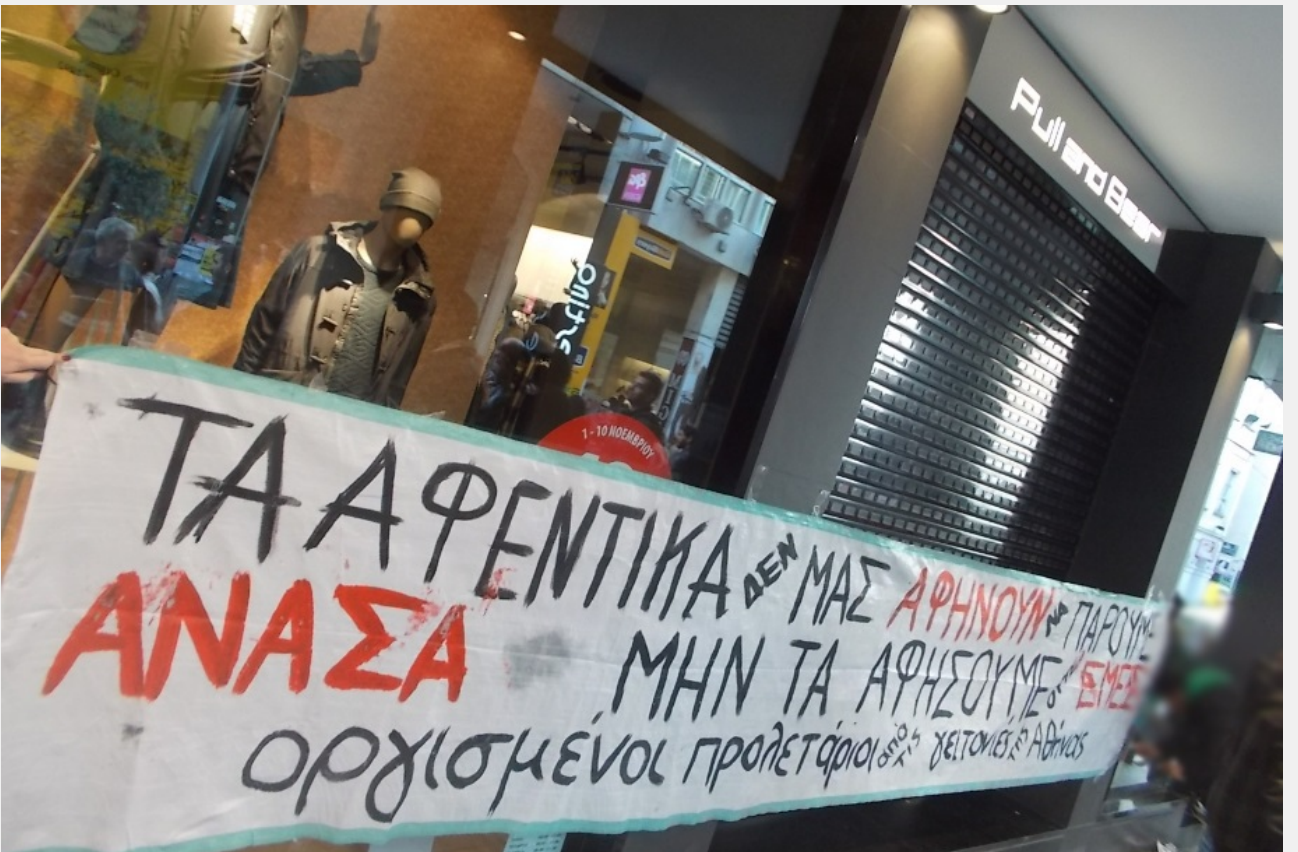 Pull and Bear
1 - 10 ΝΟΕΜΒΡΙΟΥ
ΤΑ ΑΦΕΝΤΙΚΑ ΔΕΝ ΜΑΣ ΑΦΗΝΟΥΝ ΝΑ ΠΑΡΟΥΜΕ
ΑΝΑΣΑ ΜΗΝ ΤΑ ΑΦΗΣΟΥΜΕ ΕΜΕΙΣ
οργισμένοι προλετάριοι από τις γειτονιές της Αθήνας